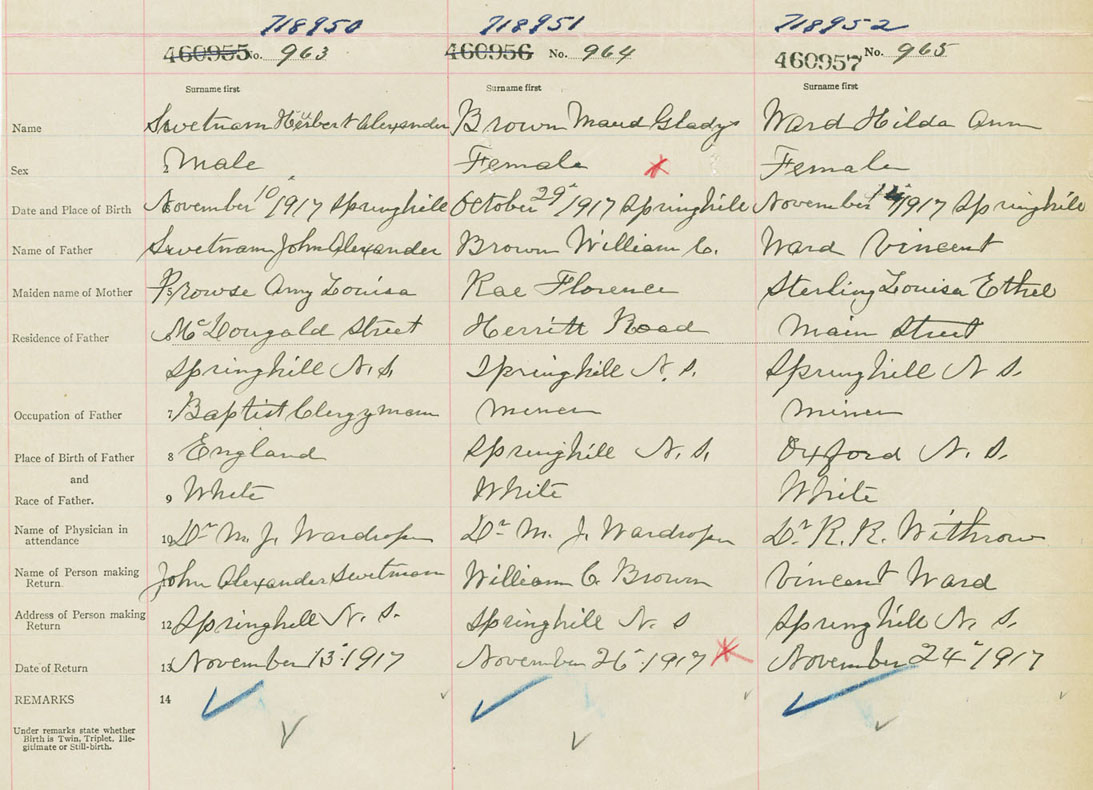 718950 718951 718952
460955 No. 963 460956 No. 964 460957 No. 965
Surname first Surname first Surname first
Name Swetnam Herbert Alexander Brown Maud Gladys Ward Hilda Ann
Sex 2 Male Female Female
Date and Place of Birth November 10 1917 Springhill October 29 1917 Springhill November 14 1917 Springhill
Name of Father Swetnam John Alexander Brown William C. Ward Vincent
Maiden name of Mother 5 Prowse Amy Louisa Rae Florence Sterling Louisa Ethel
Residence of Father 6 McDougald Street Herritt Road Main Street
Springhill N.S. Springhill N.S. Springhill N S.
Occupation of Father 7 Baptist Clergyman miner miner
Place of Birth of Father 8 England Springhill N.S. Oxford N.S.
and
Race of Father. 9 White White White
Name of Physician in attendance 10 Dr M. J. Wardrope Dr M. J. Wardrope Dr R. R. Withrow
Name of Person making Return John Alexander Swetmam William C Brown Vincent Ward
Address of Person making Return 12 Springhill N. S. Springhill N. S Springhill N. S.
Date of Return 13 November 13 1917 November 26 1917 November 24 1917
REMARKS 14
Under remarks state whether
Birth is Twin, Triplet, Ille-
gitimate or Still-birth.